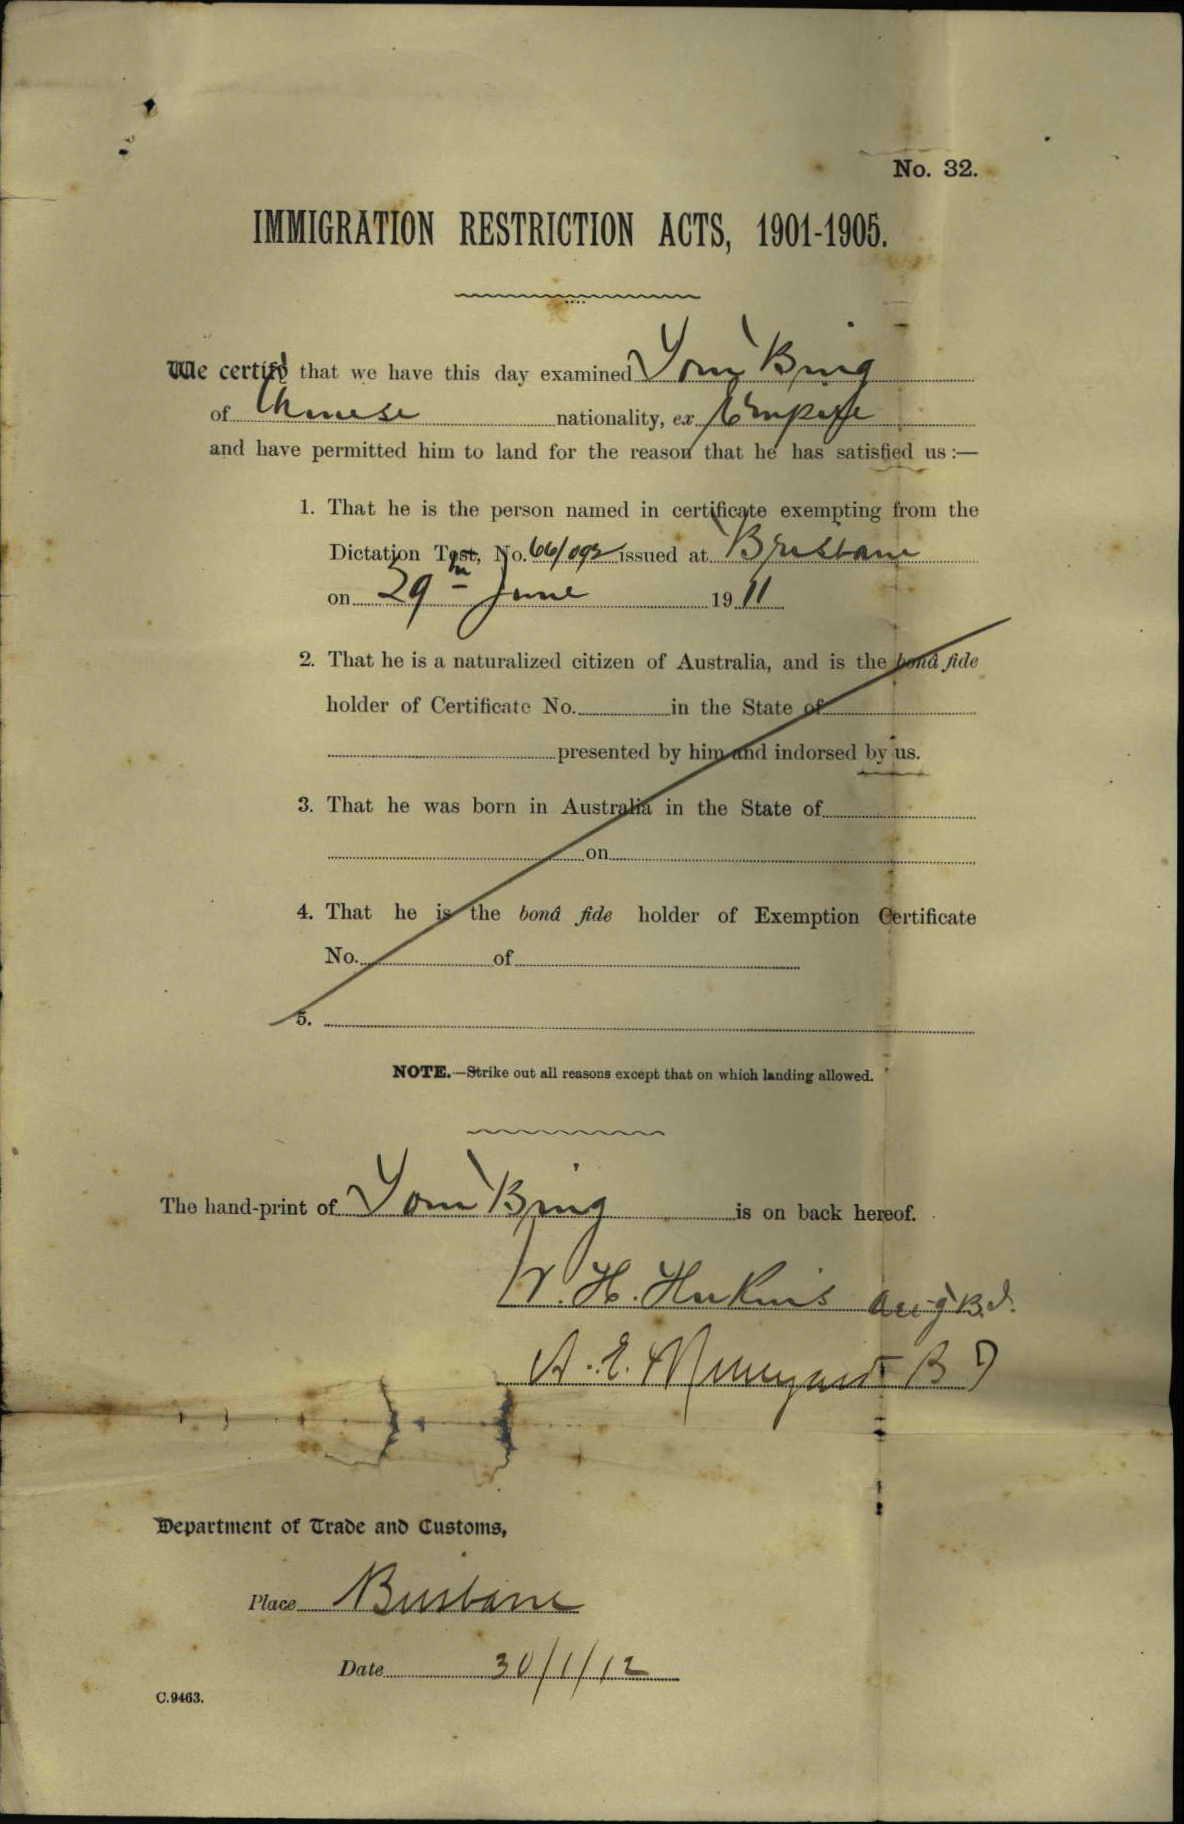 No. 32.
IMMIGRATION RESTRICTION ACTS, 1901-1905.
We certify that we have this day examined Yom Bing
of Chinese nationality, ex Empire
and have permitted him to land for the reason that he has satisfied us :—
1. That he is the person named in certificate exempting from the
Dictation Test, No. 66/092 issued at Brisbane
on 29th June 1911
2. That he is a naturalized citizen of Australia, and is the bonâ fide
holder of Certificate No. in the State of
presented by him and indorsed by us.
3. That he was born in Australia in the State of
on
4. That he is the bonâ fide holder of Exemption Certificate
No. of
5.
NOTE.—Strike out all reasons except that on which landing allowed.
The hand-print of Yom Bing is on back hereof.
W. H. B.I.
A. E. B I
Department of Trade and Customs,
Place Brisbane
Date 30/1/12
C.9463.